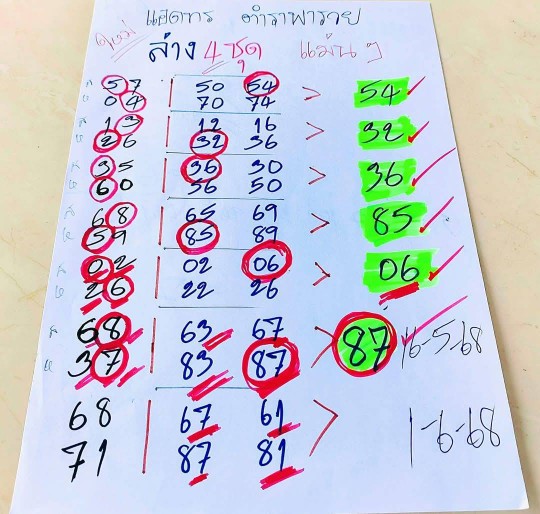 แอดทร ตำราพารวย
ใหม่ ล่าง 4 ชุด แม่นๆ
57 | 50 54 > 54 ✓
04 | 70 74
13 | 12 16 > 32 ✓
26 | 32 36
35 | 36 30 > 36 ✓
60 | 56 50
68 | 65 69 > 85 ✓
59 | 85 89
02 | 02 06 > 06 ✓
26 | 22 26
68 | 63 67 > 87 ✓ 16-5-68
37 | 83 87
68 | 67 61 > 1-6-68
71 | 87 81